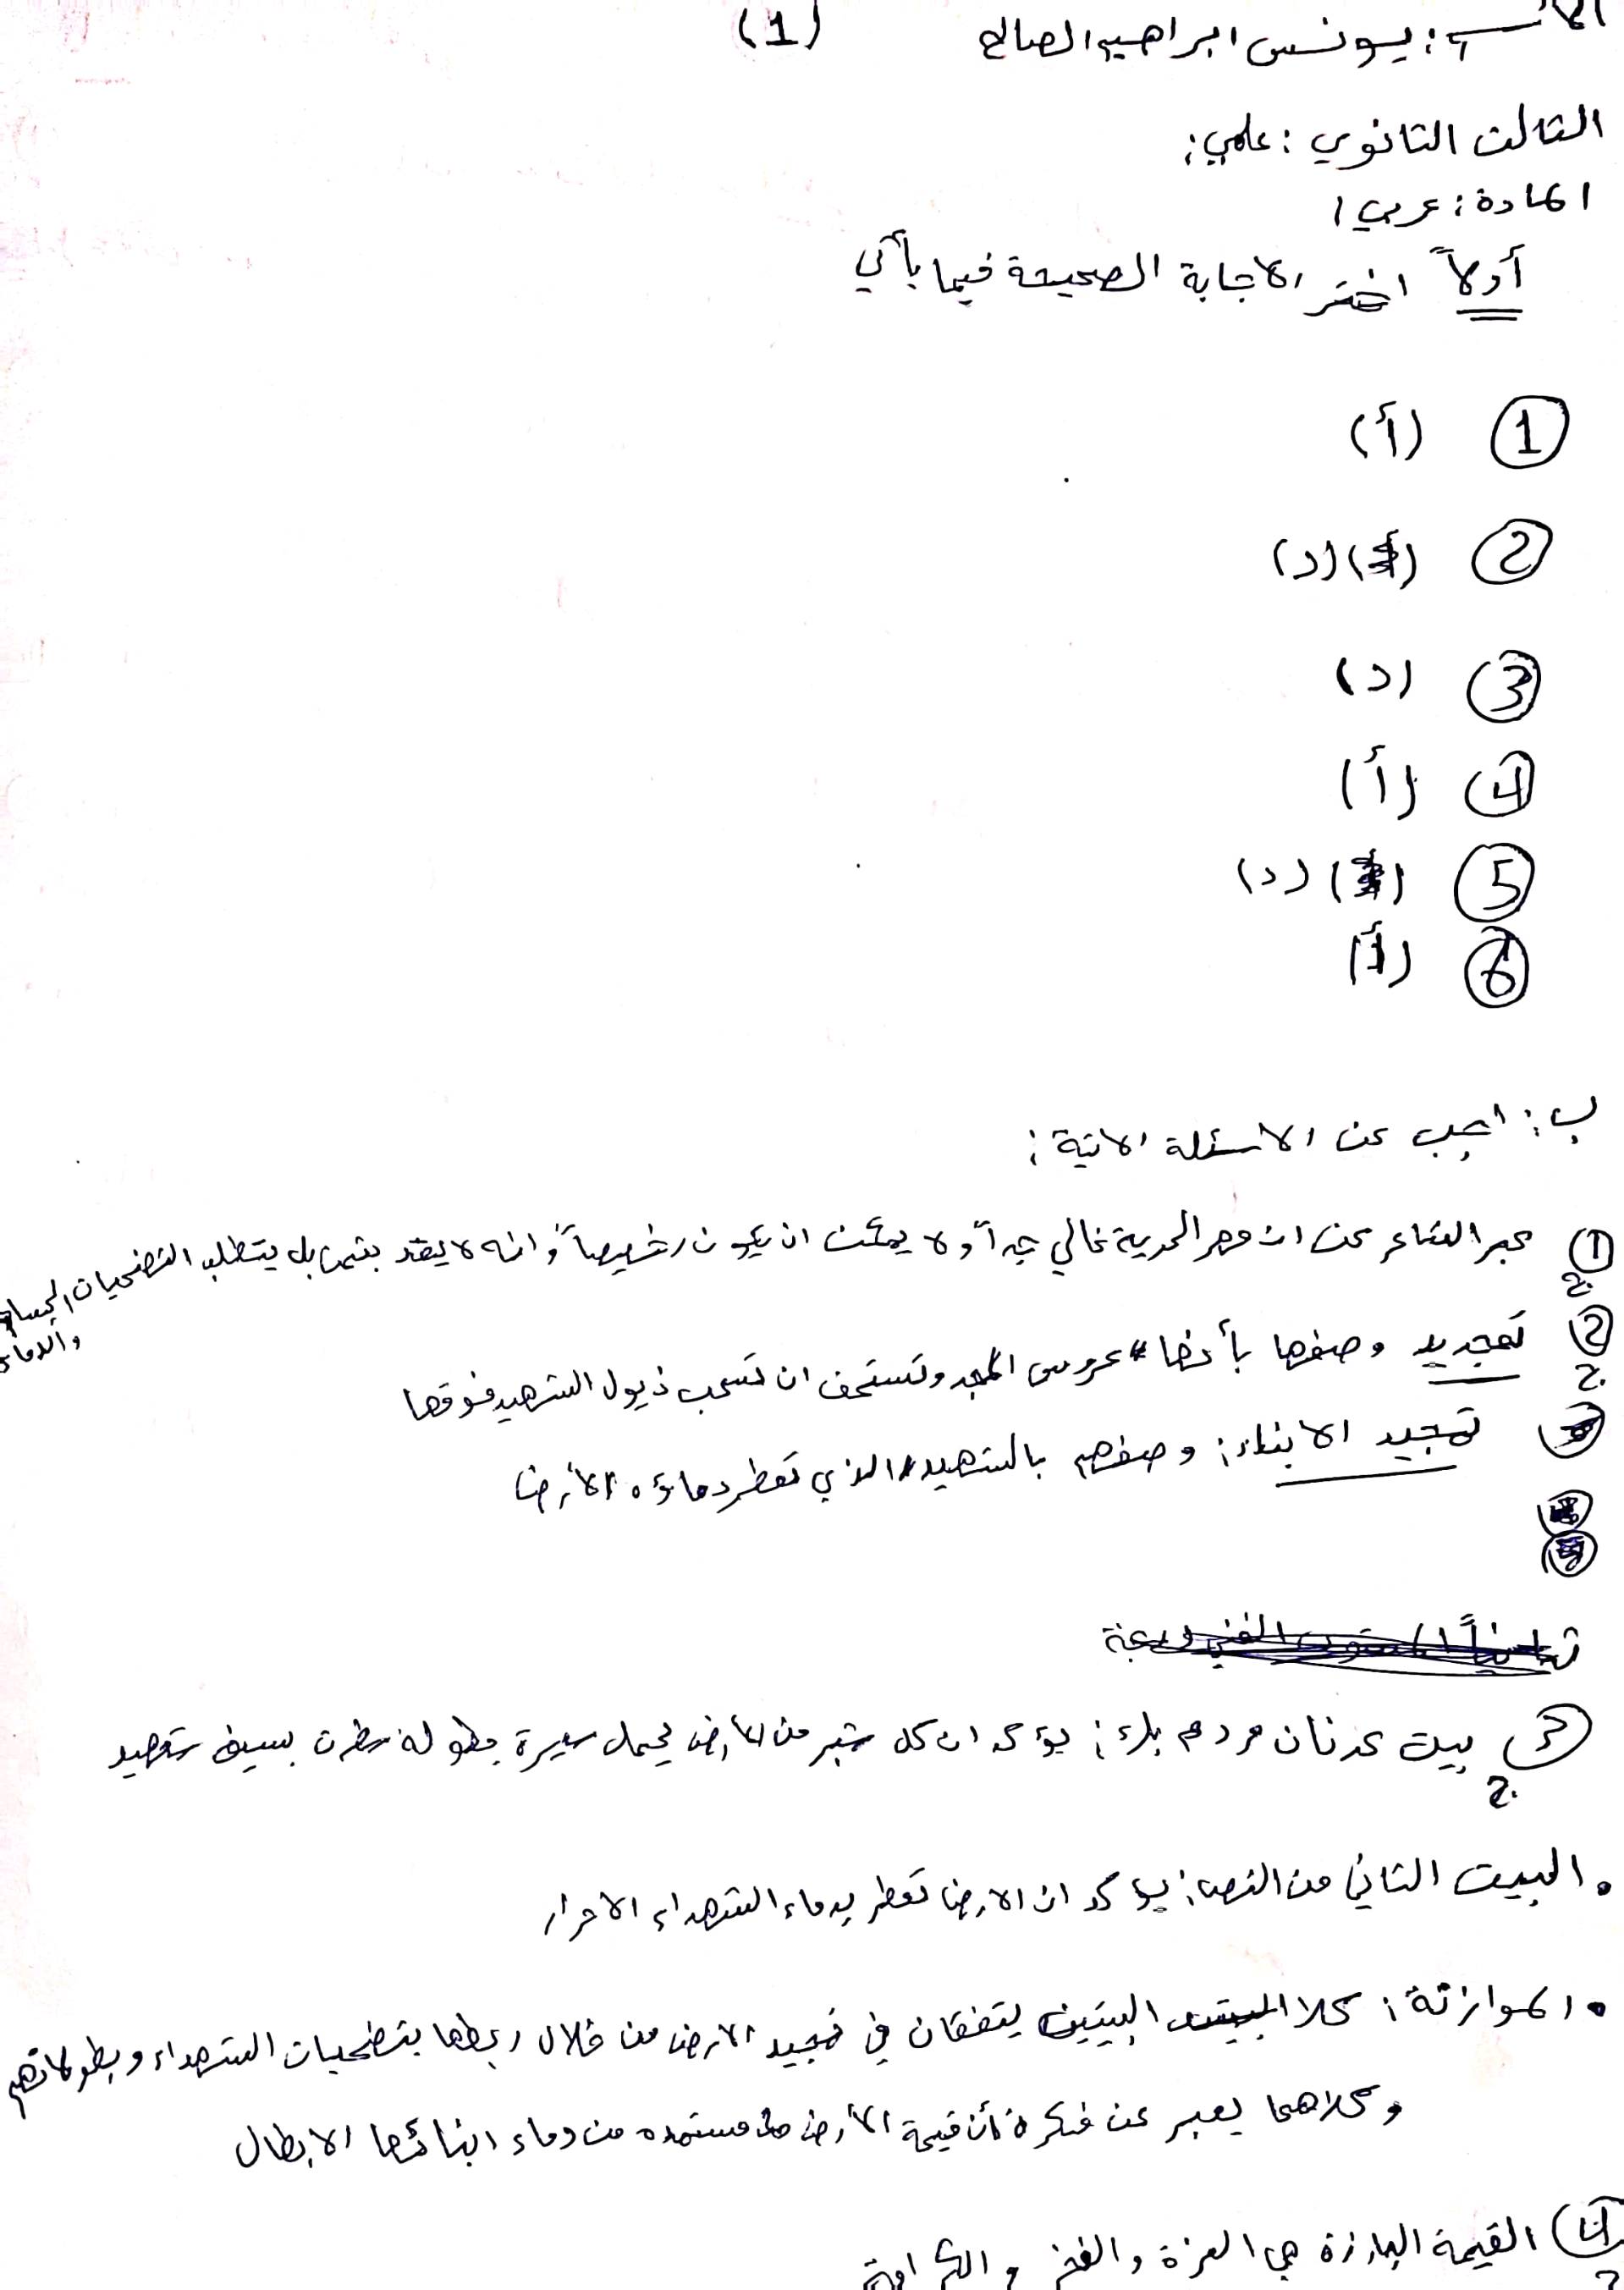 : يونس ابراهيم الصالح (1)
الثالث الثانوي : علمي :
المادة : عربي 1
أولاً اختر الاجابة الصحيحة فيما يأتي
1 (أ)
2 (د)
3 (د)
4 (أ)
5 (د)
6 (أ)
ب : اجب عن الاسئلة الاتية :
1 عبر الشاعر عن ان مهر الحرية غالي جداً ولا يمكن ان يكون رخيصاً وانه لا يقدر بثمن بل يتطلب التضحيات
والدماء
2 تمجيد وصفها بأنها " عروس المجد وتستحق ان تسحب ذيول الشهيد فوقها
تمجيد الابناء : وصفهم بالشهيد الذي تعطر دماؤه الأرض
3 بيت عدنان مردم بك : يؤكد ان كل شبر من الأرض يحمل سيرة بطولة سطرت بسيف شهيد
. البيت الثاني من النص : يؤكد ان الارض تعطر بدماء الشهداء الاحرار
. الموازنة : كلا البيتين يتفقان في تمجيد الارض من خلال ربطها بتضحيات الشهداء وبطولاتهم
وكلاهما يعبر عن فكرة أن قيمة الأرض مستمده من دماء ابنائها الابطال
4 القيمة البارزة هي العزة والفخر والكرامة